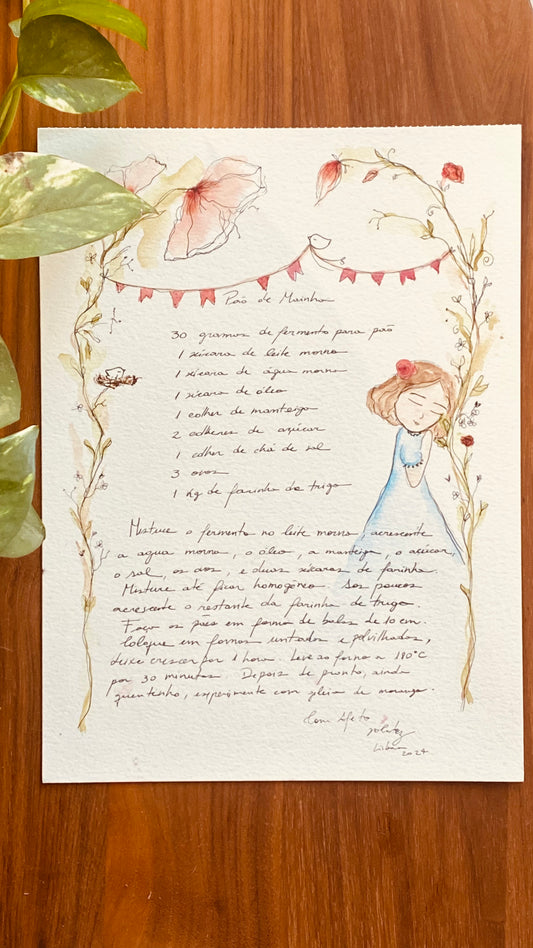 Pão de Mainha
30 gramas de fermento para pão
1 xícara de leite morno
1 xícara de água morna
1 xícara de óleo
1 colher de manteiga
2 colheres de açúcar
1 colher de chá de sal
3 ovos
1 Kg de farinha de trigo
Misture o fermento no leite morno, acrescente
a agua morna, o óleo, a manteiga, o açúcar,
o sal, os ovos, e duas xícaras de farinha.
Misture até ficar homogêneo. Aos poucos
acrescente o restante da farinha de trigo.
Faça os pães em forma de bolas de 10 cm.
Coloque em formas untadas e polvilhadas,
deixe crescer por 1 hora. Leve ao forno a 180°C
por 30 minutos. Depois de pronto, ainda
quentinho, experimente com geleia de morango.
Com Afeto
2024